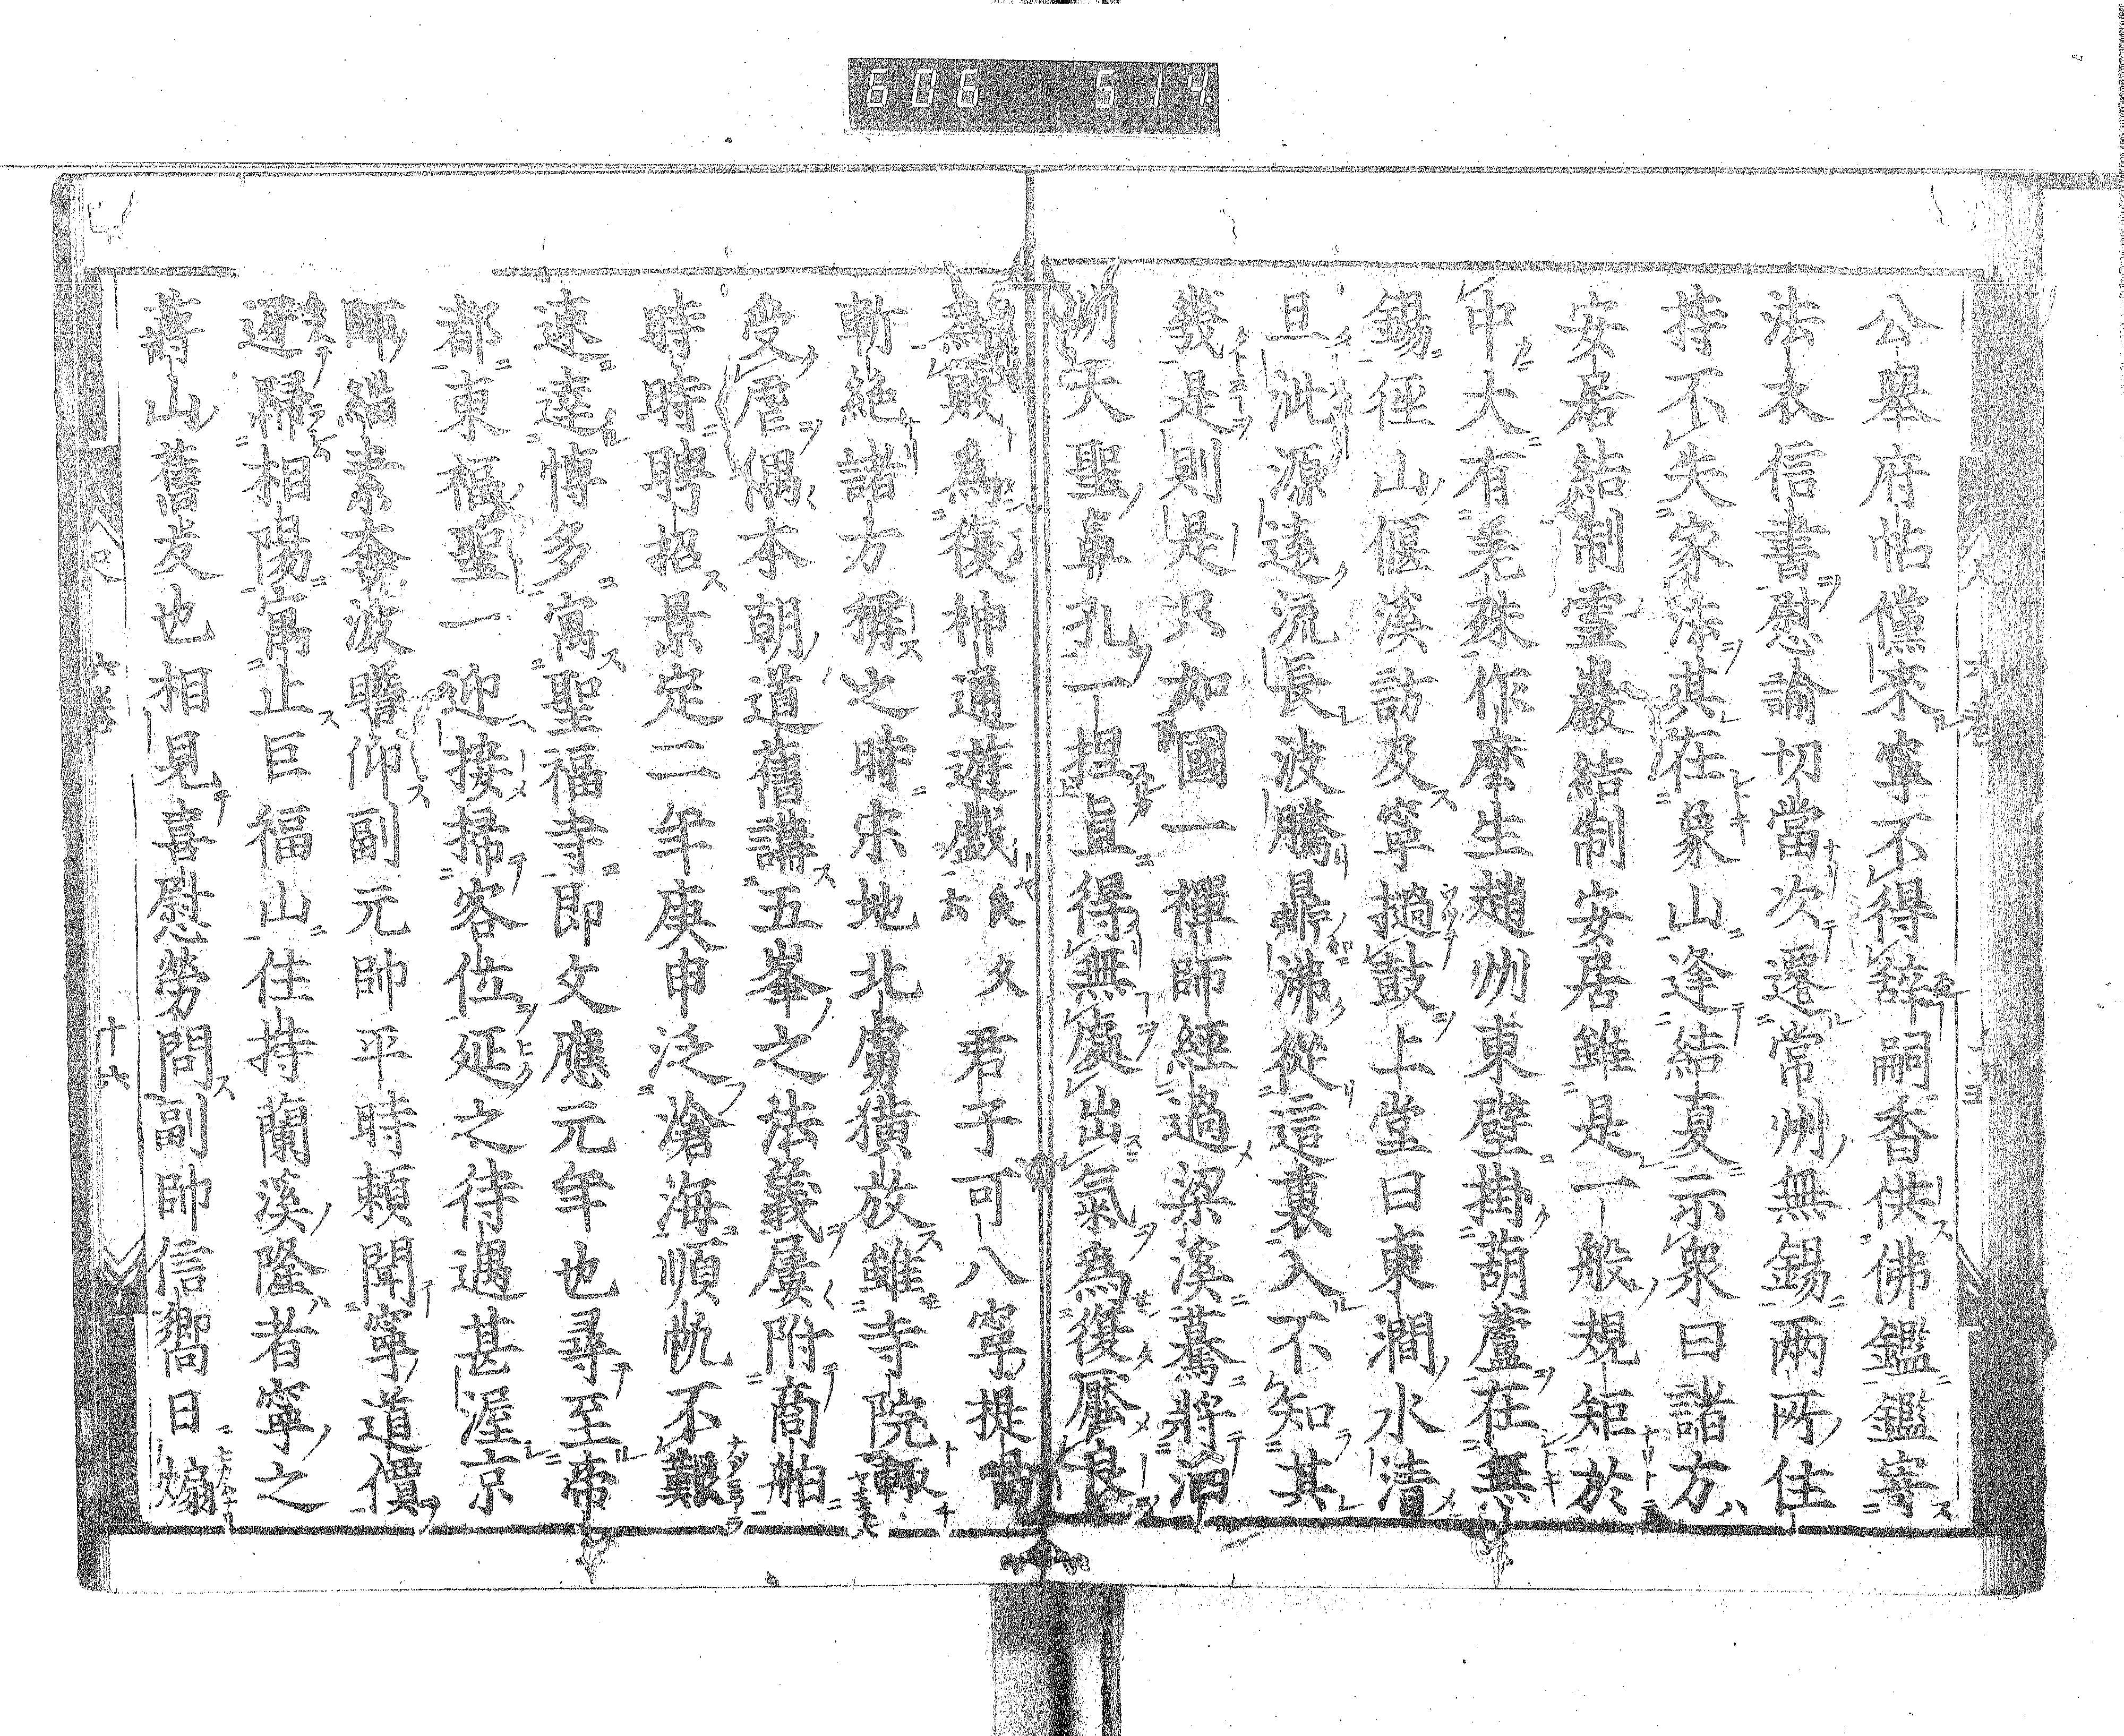 606 514
公舉府帖儻來寧不得辭嗣香供佛鑑鑑寄
法衣信書慰諭切當次遷常州無錫兩所住
持不失家法其在象山逢結夏示衆曰諸方
安居結制靈巖結制安居雖是一般規矩於
中大有毫殊作麼生趙州東壁掛葫蘆在無
錫徑山偃溪訪及寧撾鼓上堂曰東澗水清
旦泚源遠流長波騰鼎沸從這裏入不知其
幾是則是只如國一禪師經過梁溪驀將泗
州天聖鼻孔一揑直得無處出氣爲復壓良
爲賤爲復神通遊戲云云久君子可八寧提唱
斬絕諸方稱之時宋地北虜獷放雖寺院輙
受虐偶本朝道舊講五峯之法義屢附商舶
時時聘招景定二年庚申泛滄海順帆不艱
速達博多寓聖福寺即文應元年也尋至帝
都東福聖一迎接掃客位延之待遇甚渥京
師緇素奔波瞻仰副元帥平時賴聞寧道價
迓歸相陽寓止巨福山住持蘭溪隆者寧之
蔣山舊友也相見喜慰勞問副帥信嚮日煽
十六